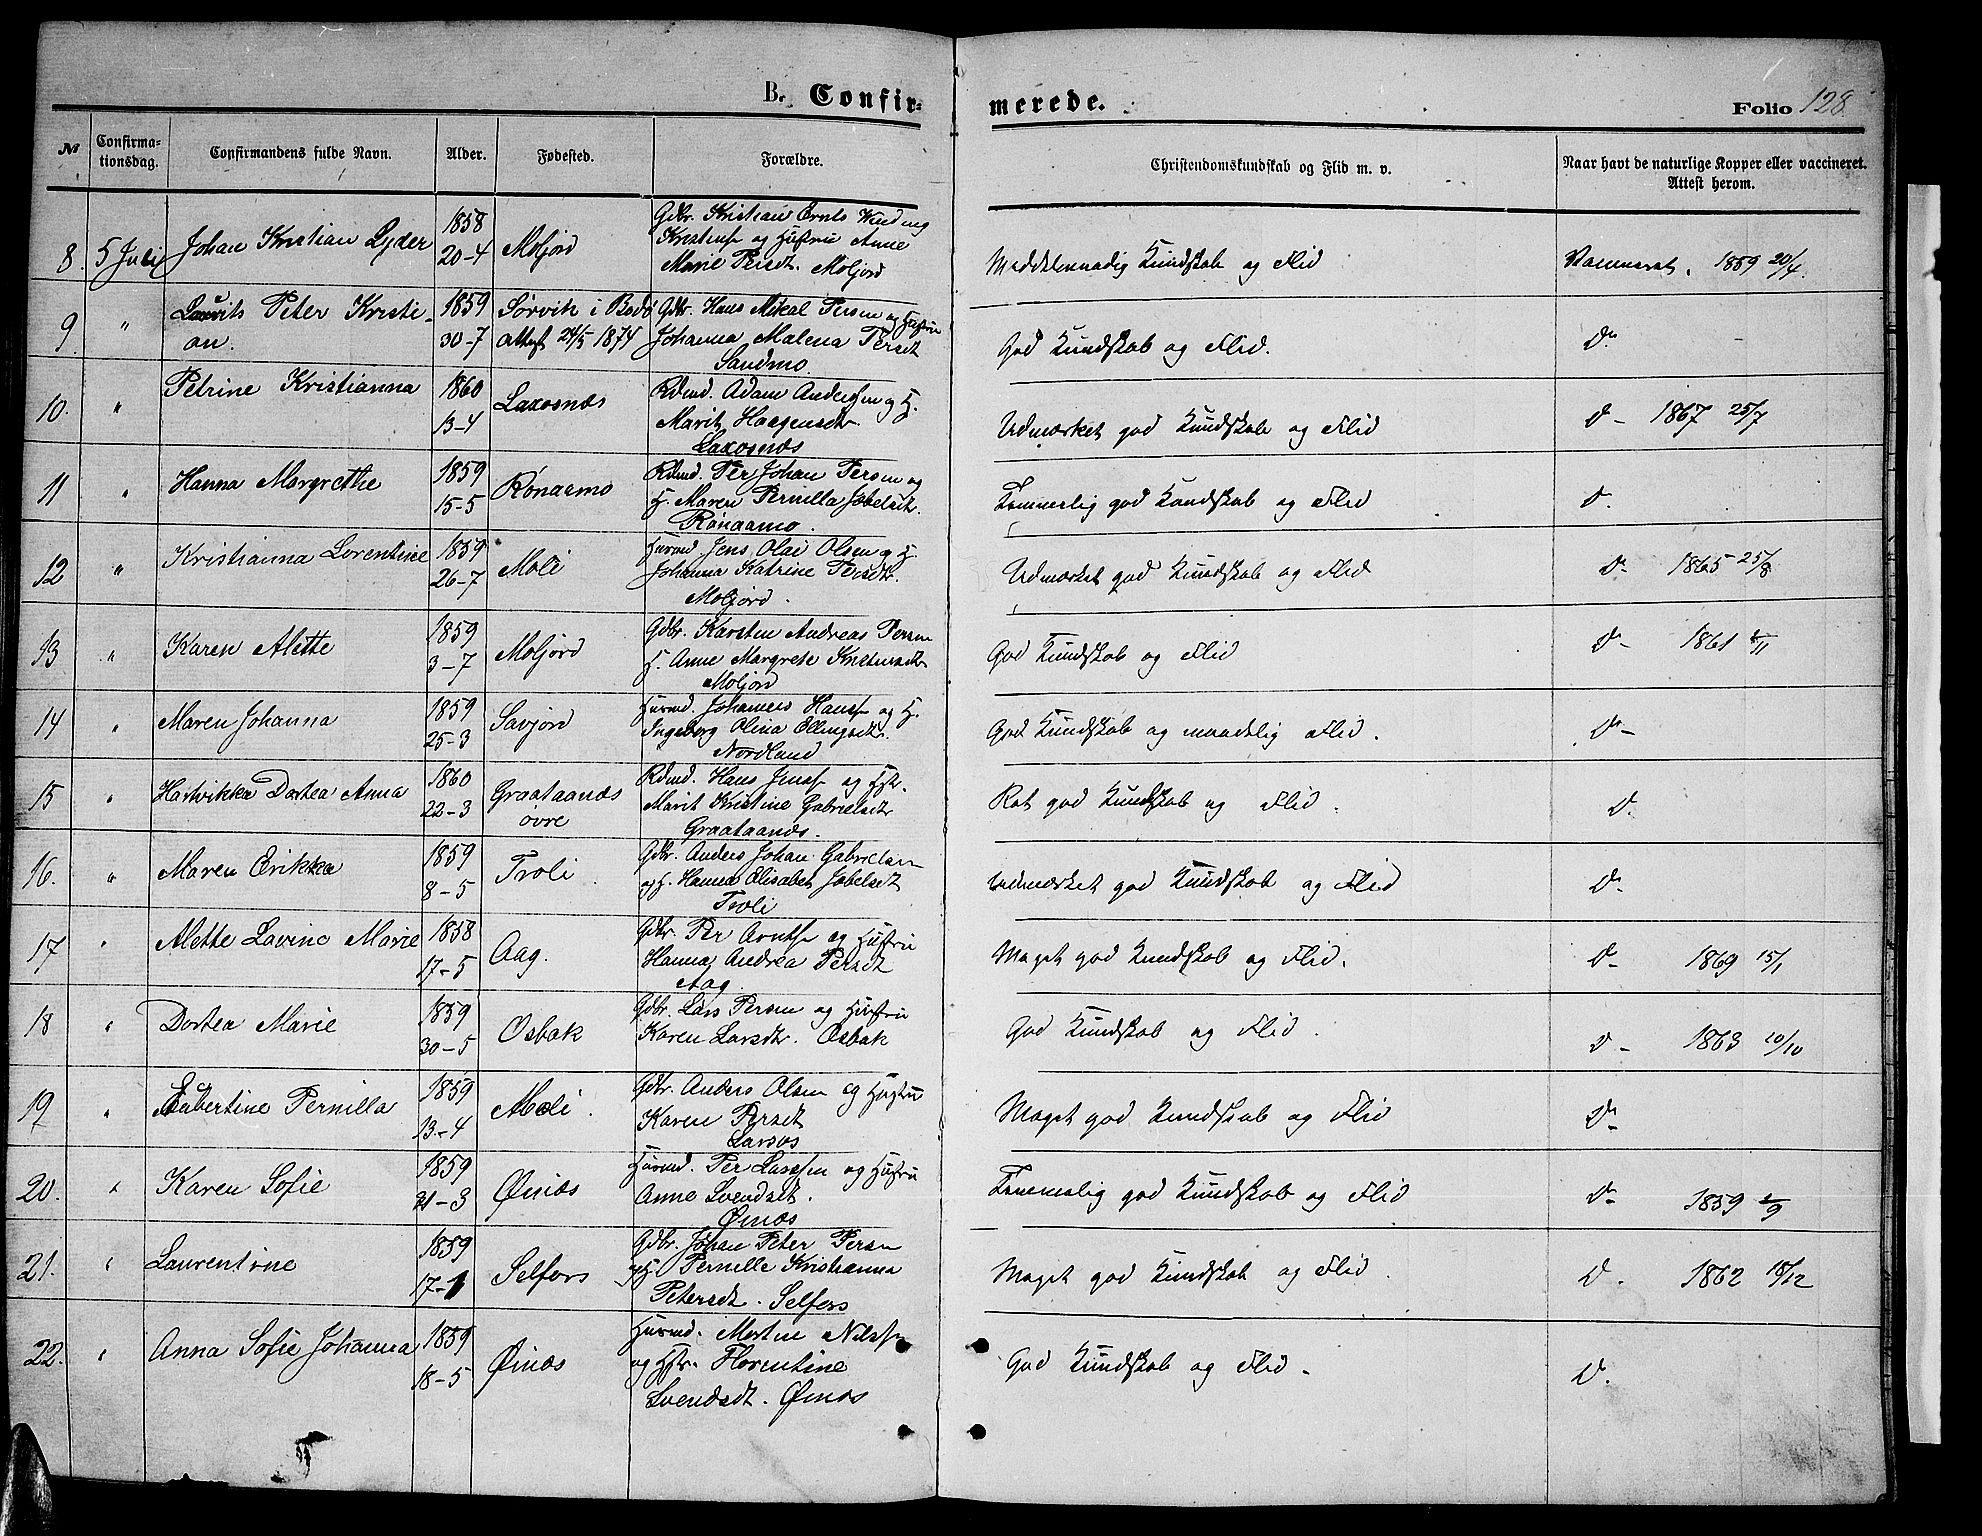 B. Confir-
merede.
Folio 128
№
Confirma-
tionsdag.
Confirmandens fulde Navn.
Alder.
Fødested.
Forældre.
Christendomskundskab og Flid m. v.
Naar havt de naturlige Kopper eller vaccineret.
Attest herom.
8. 5 Juli Johan Kristian Lyder 1858 20-4 Moljord
Gdbr. Kristian Ernts Winding
Kristens og Hustru Anne
Marie Persdt. Moljord
Meddelmaadig Kundskab og Flid
Vaccineret. 1859 20/4
9. " Laurits Peter Kristi-
an.
1859 30-7
Sørvik i Bodø
attest 24/5 1874
Gdbr. Hans Mikal Persen og Hustru
Johanna Malena Persdt
Sandmo
God Kundskab og Flid.
D-
10. " Petrine Kristianna 1860 13-4 Laxosnæs
Rdmd. Adam Andersen og H.
Marit Haagensdtr
Laxosnæs
Udmærket god Kundskab og Flid
D- 1867 25/7
11 " Hanna Margrethe 1859 15-5 Rønaamo
Rdmd. Per Johan Persen og
H. Maren Pernilla Jobelsdt.
Rønaamo.
Temmelig god Kundskab og Flid
D.
12 " Kristianna Lorentine 1859 26-7 Moli
Husmd. Jens Olai Olsen og H.
Johanna Katrine Persdtr.
Moljord.
Udmærket god Kundskab og Flid
D- 1865 25/8
13 " Karen Alette 1859 3-7 Moljord
Gdbr. Karsten Andreas Persen
H. Anne Margrete Kristensdtr
Moljord
God Kundskab og Flid
D- 1861
14 " Maren Johanna 1859 25-3 Savjord
Husmd. Johannes Hansen og H.
Ingeborg Olina Ellingsdtr.
Nordland
God Kundskab og maadelig Flid.
D-
15 " Hartvikka Dortea Anna 1860 22-3
Graataanæs
øvre
Rdmd. Hans Jensen og Hstr.
Marit Kristine Gabrielsdtr
Graataanæs.
Ret god Kundskab og Flid.
D.
16. " Maren Erikka 1859 8-5 Troli
Gdbr. Anders Johan Gabrielsen
og H. Hanna Elisabet Jobelsdt
Troli
Udmærket god Kundskab og Flid
D.
17 " Alette Lavina Marie 1858 17-5 Aag.
Gdbr. Per Arntsen og Hustru
Hanna Andrea Persdt
Aag
Meget god Kundskab og Flid.
D- 1869 15/1
18 " Dortea Marie 1859 30-5 Osbak
Gdbr. Lars Persen og Hustru
Karen Larsdtr. Osbak
God Kundskab og Flid.
D- 1863 10/10
19 " Elbertine Pernilla 1859 13-4 Moli.
Gdbr. Anders Olsen og Hustru
Karen Persdt
Larsos
Meget god Kundskab og Flid
D-
20. " Karen Sofie 1859 21-3 Øinæs
Husmd. Per Larsen og Hustru
Anne Svendsdt.
Øinæs
Temmelig god Kundskab og Flid
D- 1859
21. " Laurentine 1859 17-1 Selfors
Gdbr. Johan Peter Persen
og H. Pernille Kristianna
Petersdt. Selfors
Meget god Kundskab og Flid.
D. 1862 18/12
22. " Anna Sofie Johanna 1859 18-5 Øinæs
Husmd. Morten Nilsen
og Hstr. Florentine
Svendsdt. Øinæs
God Kundskab og Flid.
D.